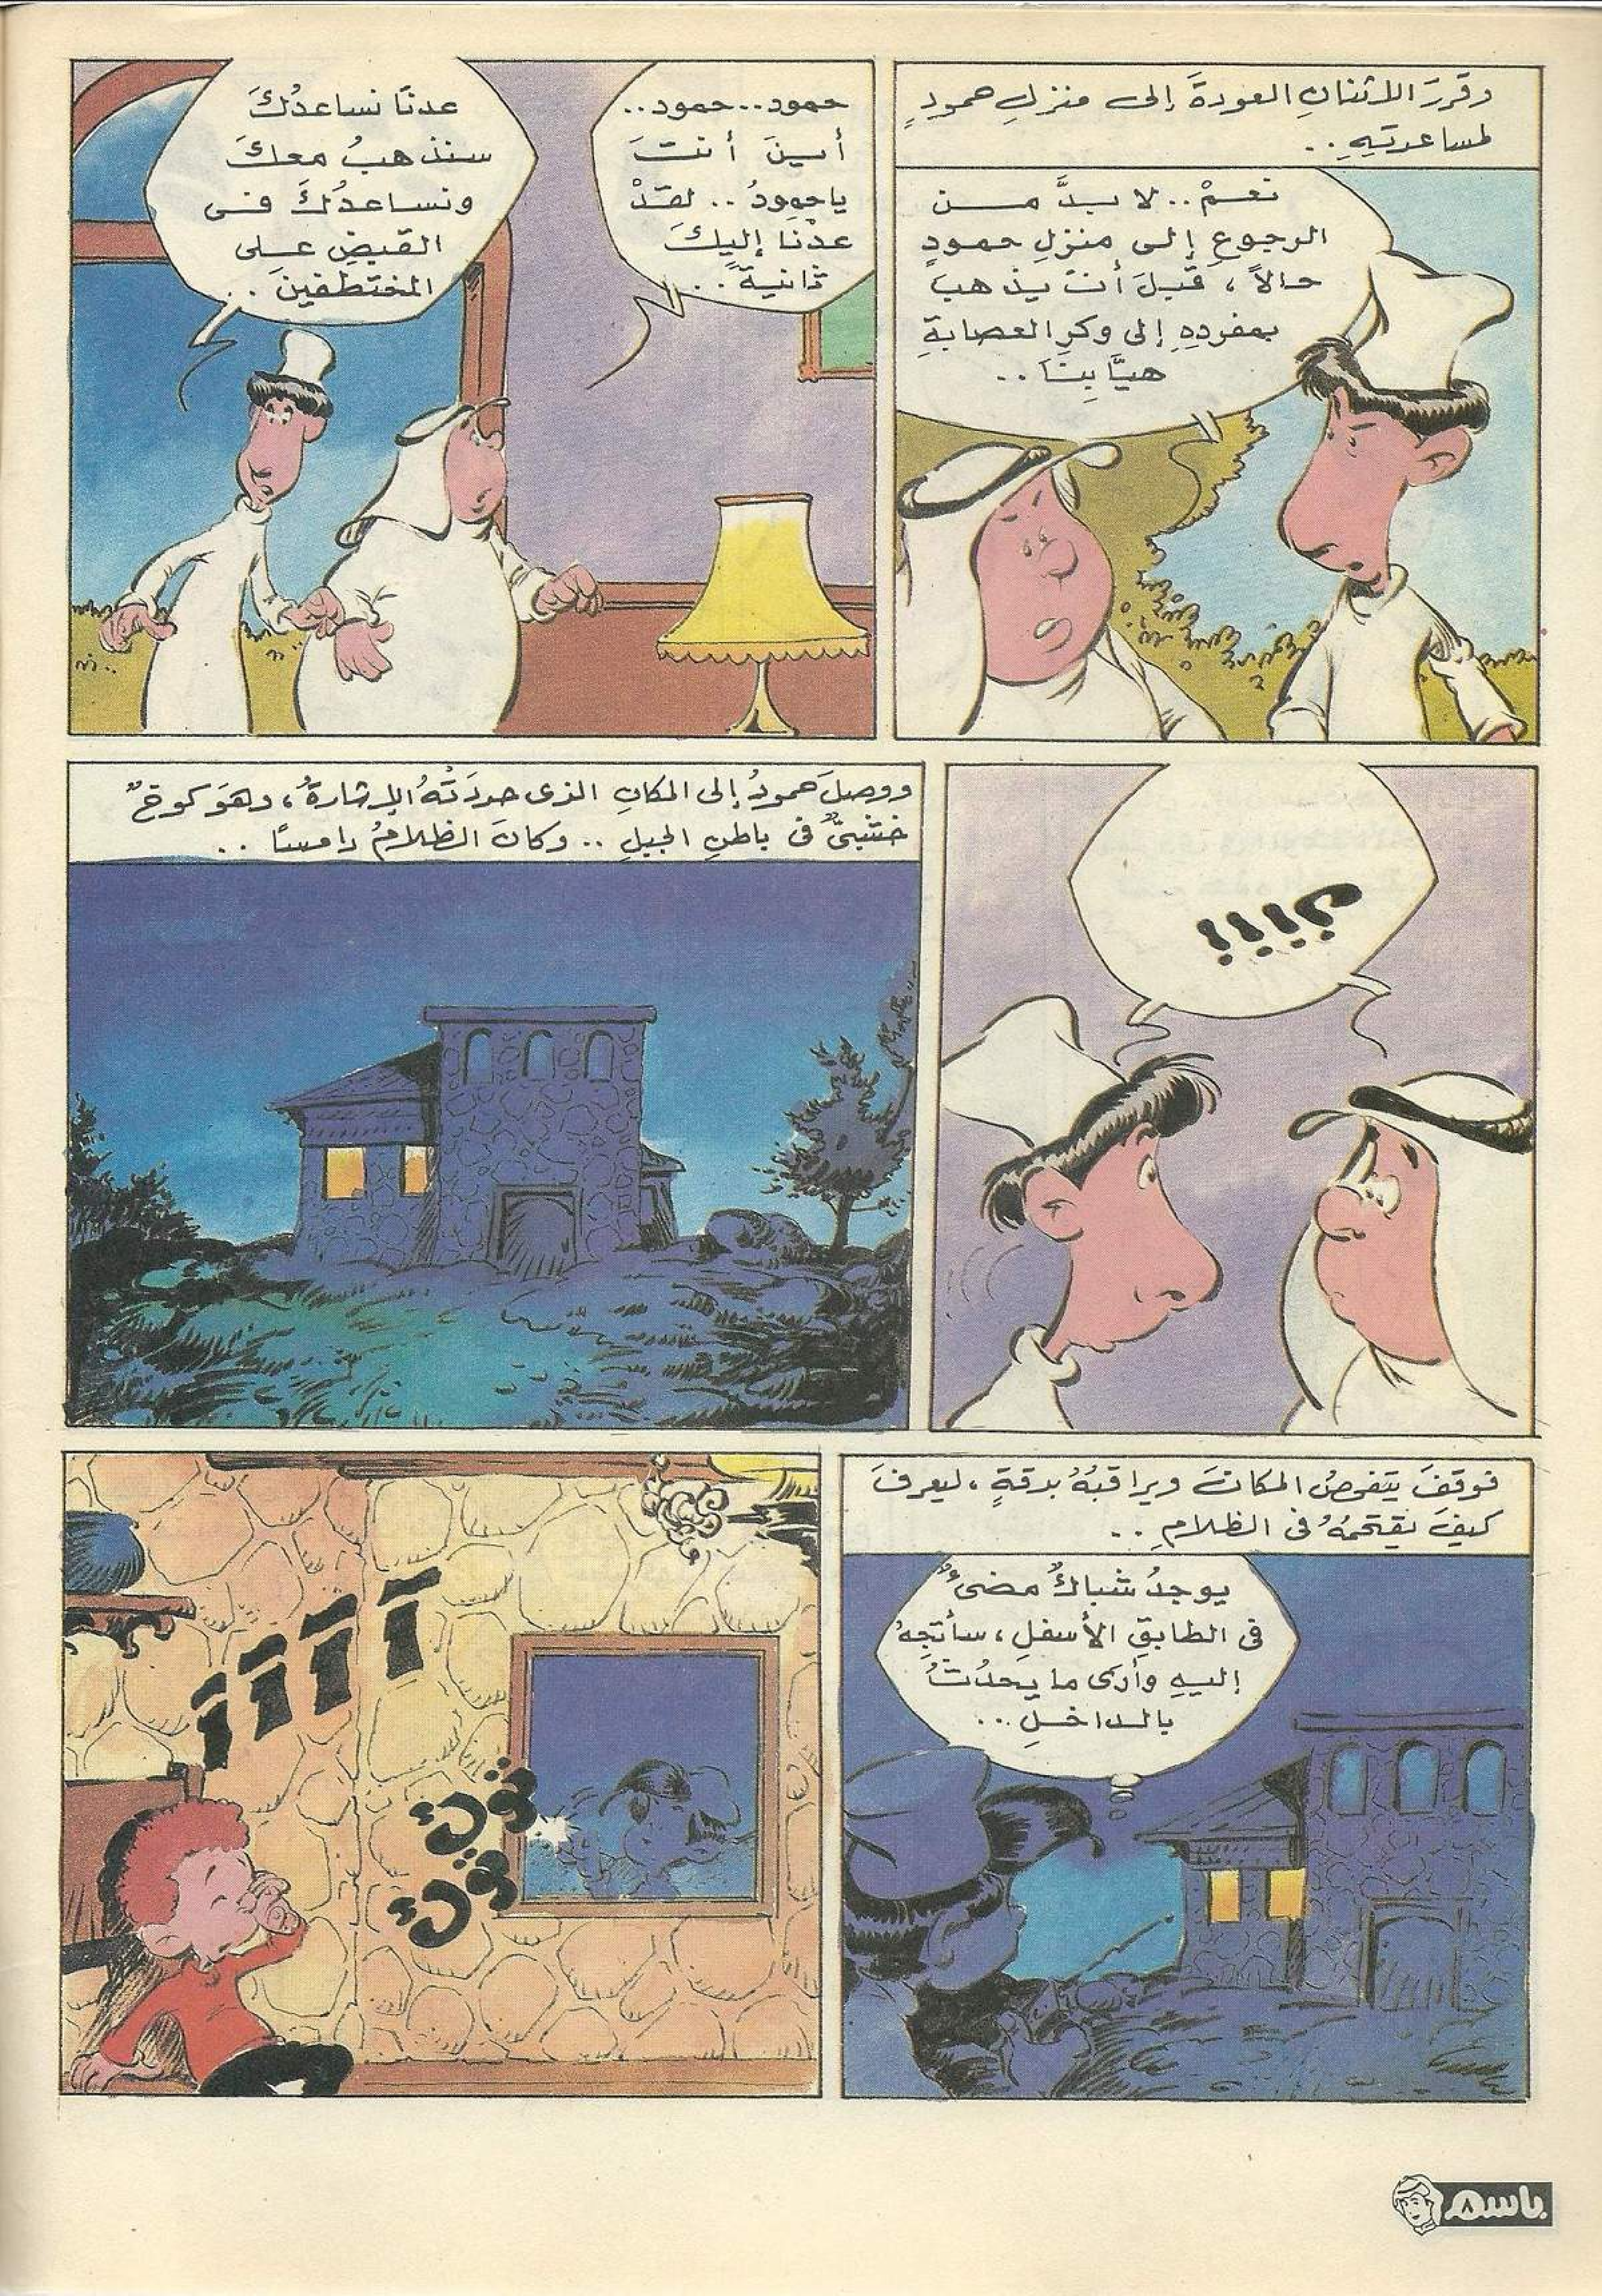 وقررَ الاثنانِ العودةَ إلى منزلِ حمودٍ
لمساعدتِهِ..
نعمْ.. لا بدَّ من
الرجوعِ إلى منزلِ حمودٍ
حالاً، قبلَ أنْ يذهبَ
بمفردِهِ إلى وكرِ العصابةِ
هيَّا بِنَا..
حمود.. حمود..
أينَ أنتَ
ياحمودُ.. لقدْ
عدْنا إليكَ
ثانيةً..
عدنَا نساعدُكَ
سنذهبُ معكَ
ونساعدُكَ فى
القبضِ على
المختطفينَ..
؟!؟!!
ووصلَ حمودُ إلى المكانِ الذى حددَتْهُ الإشارةُ، وهوَ كوخٌ
خشبىٌّ فى باطنِ الجبلِ.. وكانَ الظلامُ دامسًا..
فوقفَ يتفحصُ المكانَ ويراقبُهُ بدقةٍ، ليعرفَ
كيفَ يقتحمُهُ فى الظلامِ..
يوجدُ شباكٌ مضىءٌ
فى الطابقِ الأسفلِ، سأتجِهُ
إليهِ وأرى ما يحدُثُ
بالداخلِ...
آ آ آ آ
توكْ
توكْ
باسم
٨